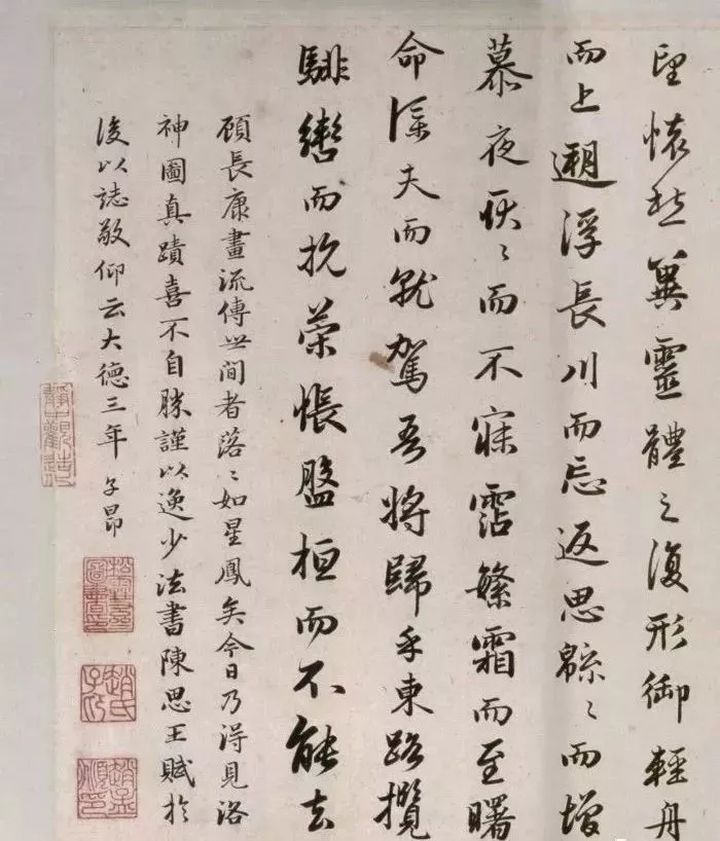 望懷愁冀靈體之復形御輕舟
而上遡浮長川而忘返思緜〻而增
慕夜耿〻而不寐霑繁霜而至曙
命僕夫而就駕吾將歸乎東路攬
騑轡而抗策悵盤桓而不能去
顧長康畫流傳世間者落〻如星鳳矣今日乃得見洛
神圖真蹟喜不自勝謹以逸少法書陳思王賦於
後以誌敬仰云大德三年 子昂
靜中觀造
趙氏子昂
趙孟頫印